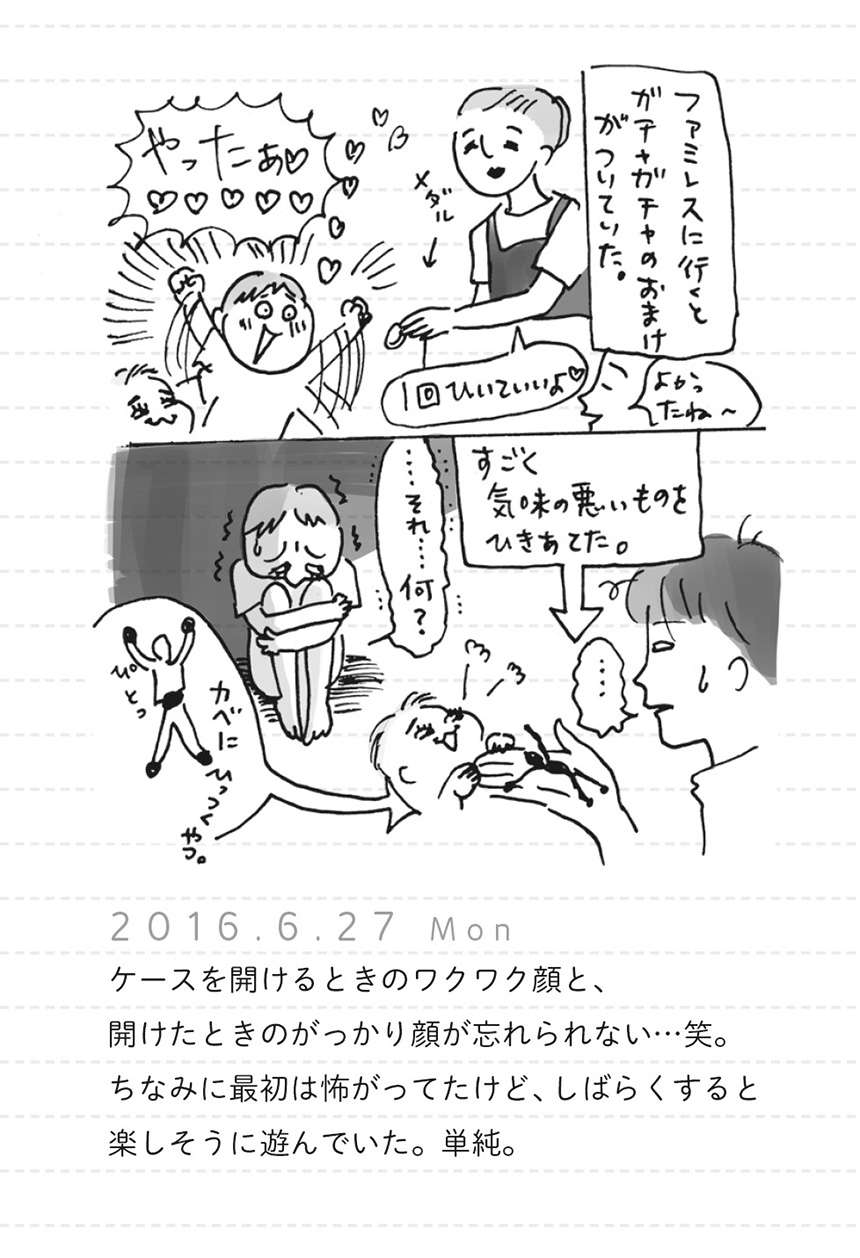 ファミレスに行くと
ガチャガチャのおまけ
がついていた。
メダル
やったぁ♡
♡♡♡♡♡
1回ひいていいよ♡
よかっ
たね〜
すごく
気味の悪いものを
ひきあてた。
……それ……何?
…
ぴとっ
カベにひっつくやつ。
2016.6.27 Mon
ケースを開けるときのワクワク顔と、
開けたときのがっかり顔が忘れられない…笑。
ちなみに最初は怖がってたけど、しばらくすると
楽しそうに遊んでいた。単純。